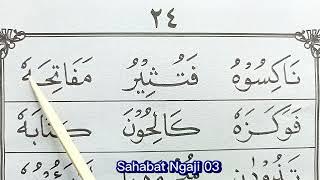 ٢٤
نَاكِسُوْهُ فَتُثِيْرُ مَفَاتِحَهٗ
فَوَكَزَهٗ كَالِحُوْنَ كِتَابَهٗ
Sahabat Ngaji 03